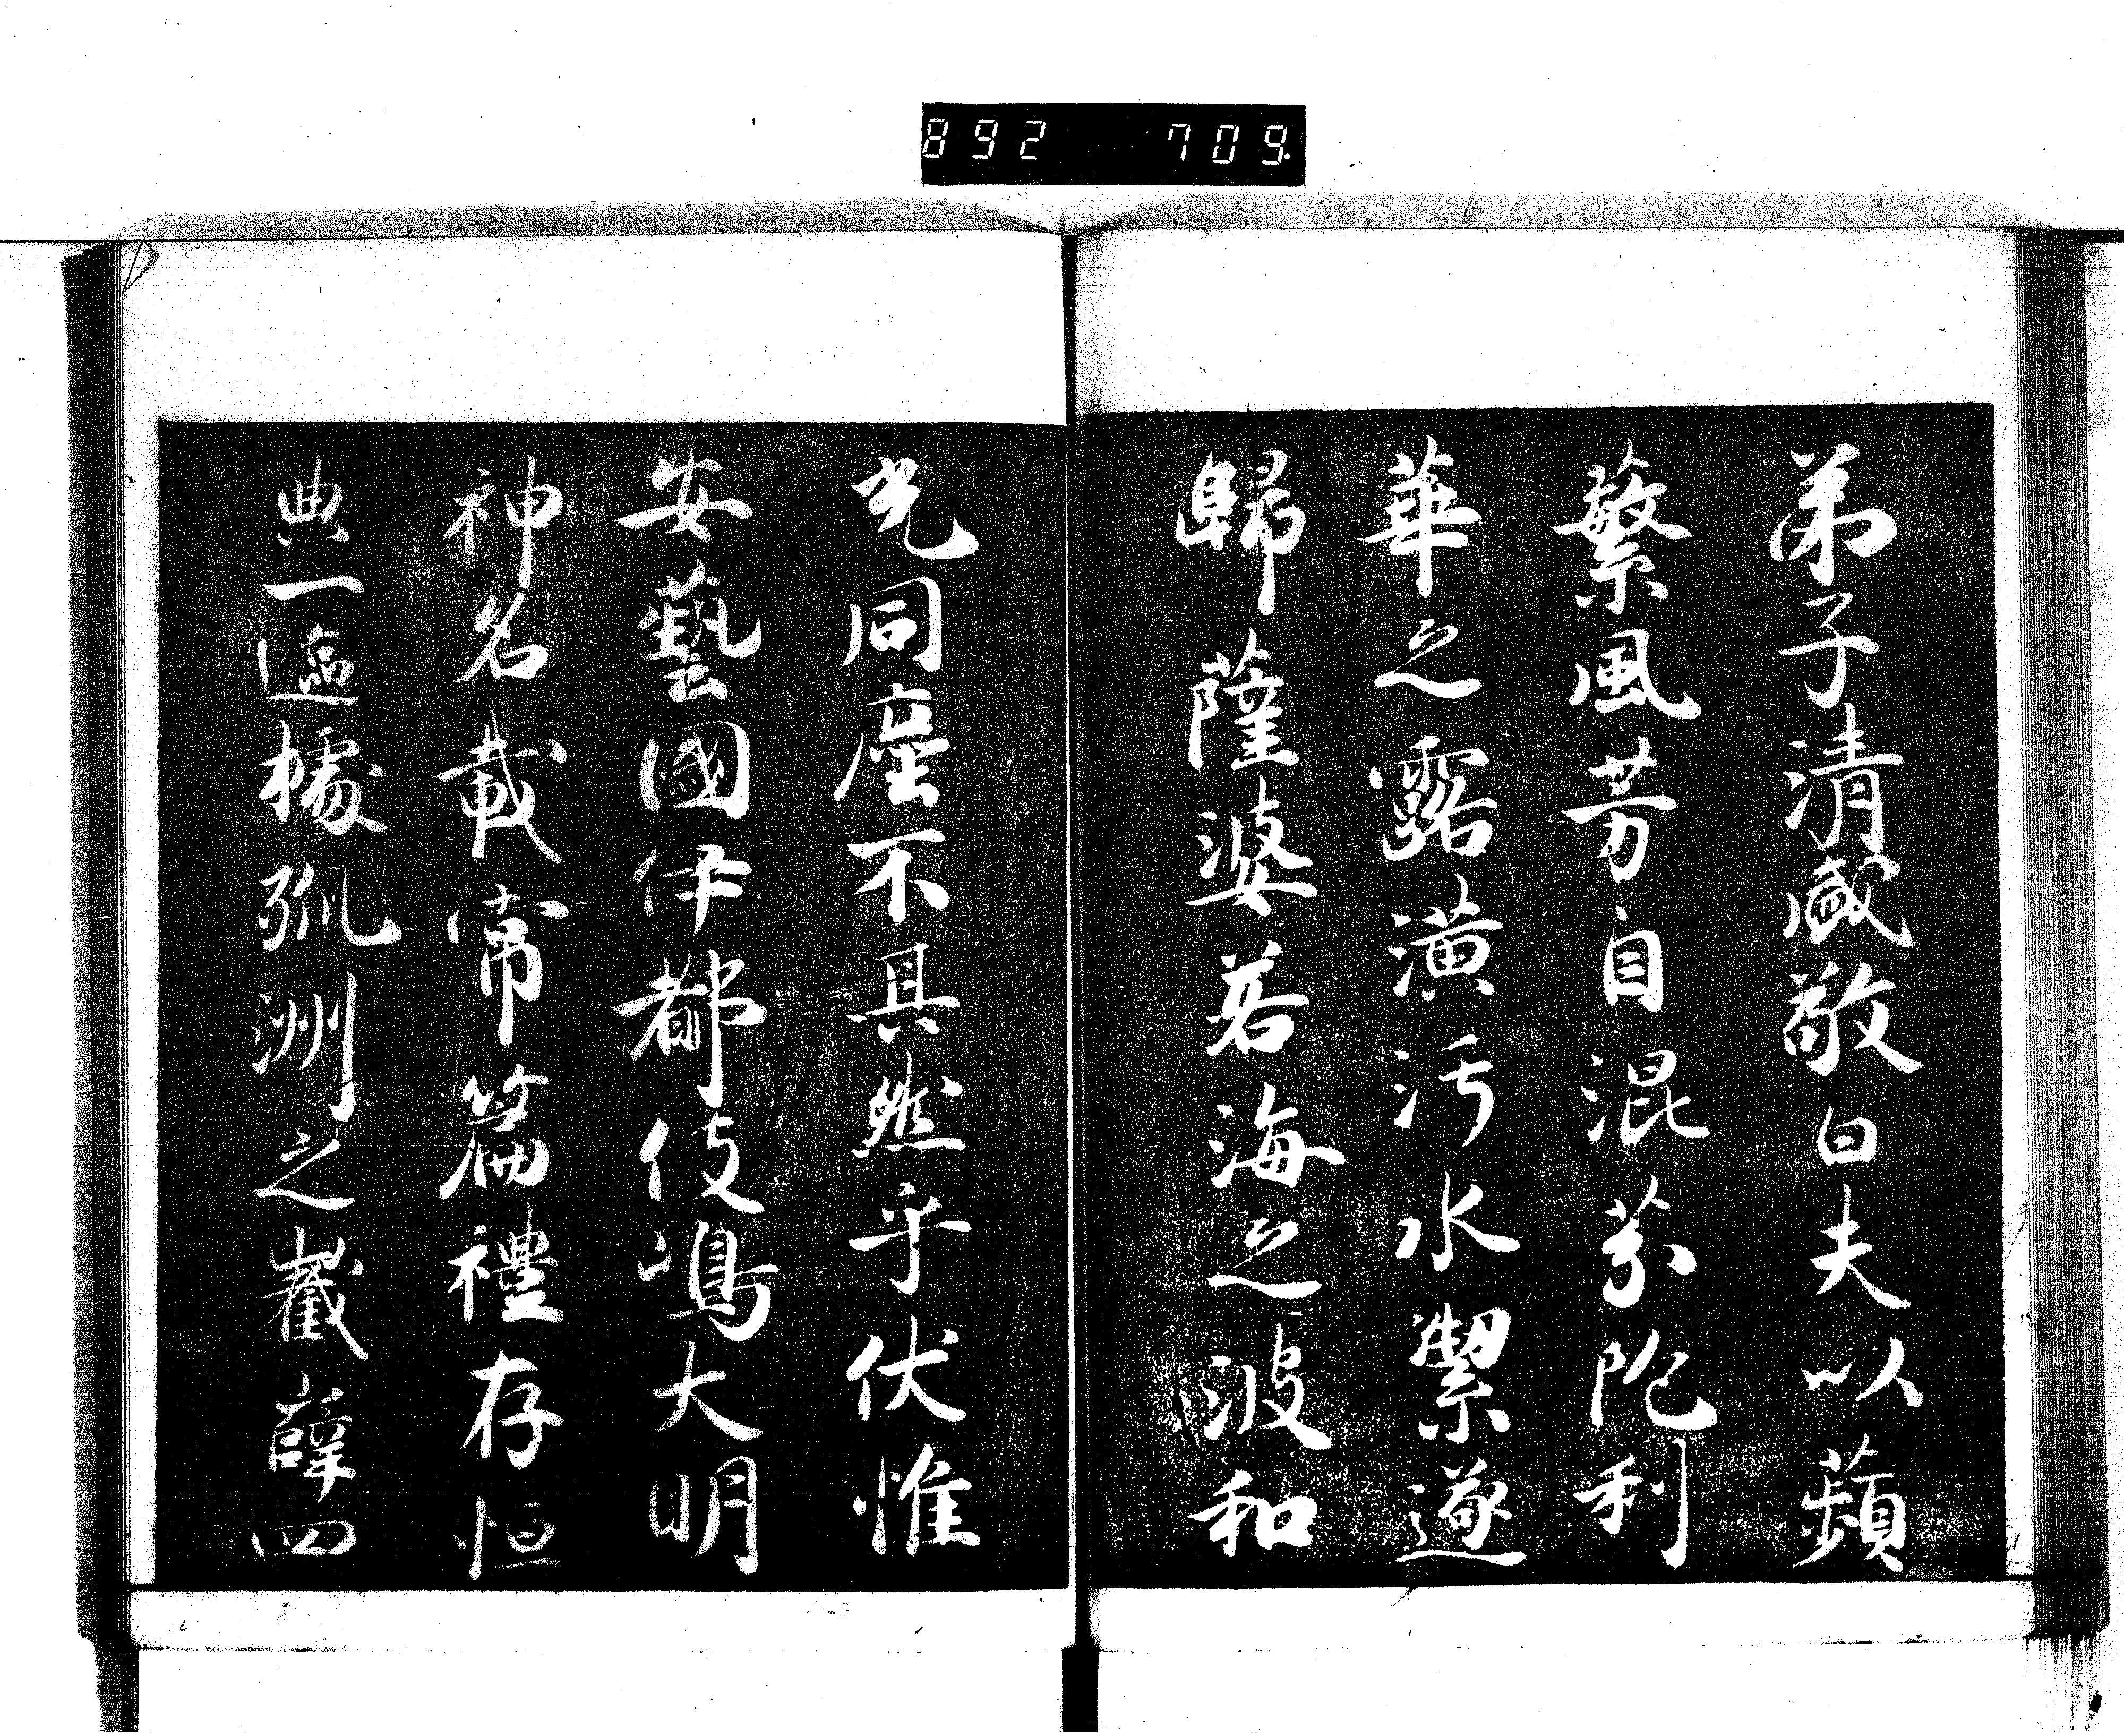 892 709.
弟子清盛敬白夫以蘋
蘩風芳自混芬陀利
華之露潢汙水潔遂
歸薩婆若海之波和
光同塵不其然乎伏惟
安藝國伊都伎嶋大明
神名載常篇禮存恒
典一區據孤洲之巀嶭四